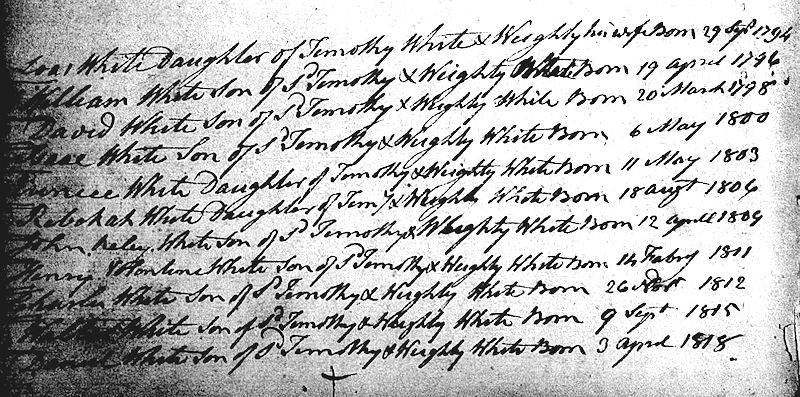 White Daughter of Timothy White & Weighty his wife Born 29 Sept 1794
William White Son of Sd Timothy & Weighty White Born 19 april 1796
David White Son of Sd Timothy & Weighty White Born 20 March 1798
Isaac White Son of Sd Timothy & Weighty White Born 6 May 1800
White Daughter of Timothy & Weighty White Born 11 May 1803
Rebekah White Daughter of Timy & Weighty White Born 18 augt 1806
John White Son of Sd Timothy & Weighty White Born 12 april 1809
Henry White Son of Sd Timothy & Weighty White Born 14 Febry 1811
Charles White Son of Sd Timothy & Weighty White Born 26 1812
White Son of Sd Timothy & Weighty White Born 9 Sept 1815
Daniel White Son of Sd Timothy & Weighty White Born 3 april 1818